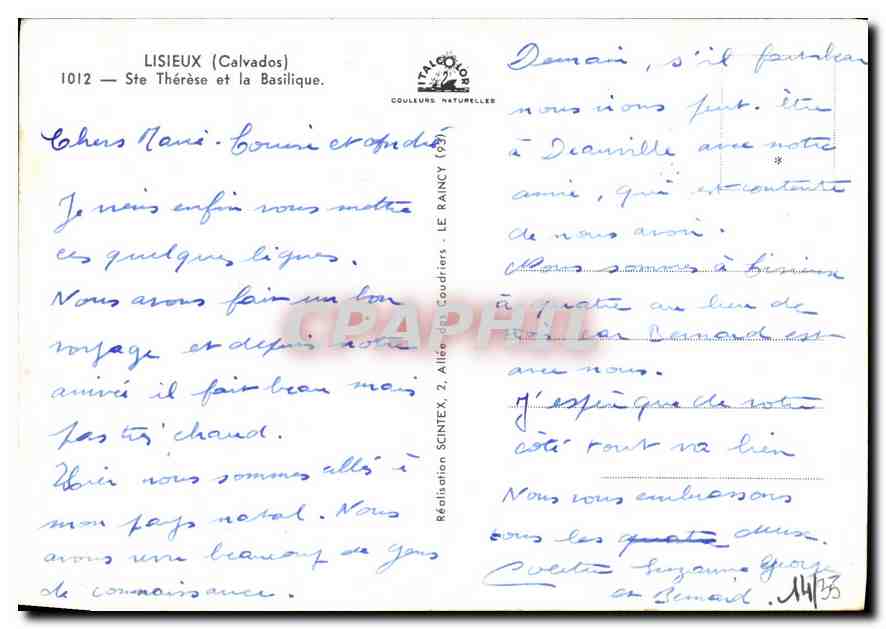 LISIEUX (Calvados)
1012 — Ste Thérèse et la Basilique.
ITALCOLOR
COULEURS NATURELLES
Chers Marie-Louise et André
Je viens enfin vous mettre
ces quelques lignes.
Nous avons fait un bon
voyage et depuis notre
arrivée il fait beau mais
pas très chaud.
Hier nous sommes allés à
mon pays natal. Nous
avons revu beaucoup de gens
de connaissance.
Réalisation SCINTEX, 2, Allée des Coudriers - LE RAINCY (93)
Demain, s'il fait beau
nous irons peut-être
à Deauville avec notre
amie, qui est contente
de nous avoir.
Nous sommes à Lisieux
à quatre au lieu de
trois car Bernard est
avec nous.
J'espère que de votre
côté tout va bien
Nous vous embrassons
tous les quatre deux.
Colette Suzanne George
et Bernard.
14/33
CPAPHIL